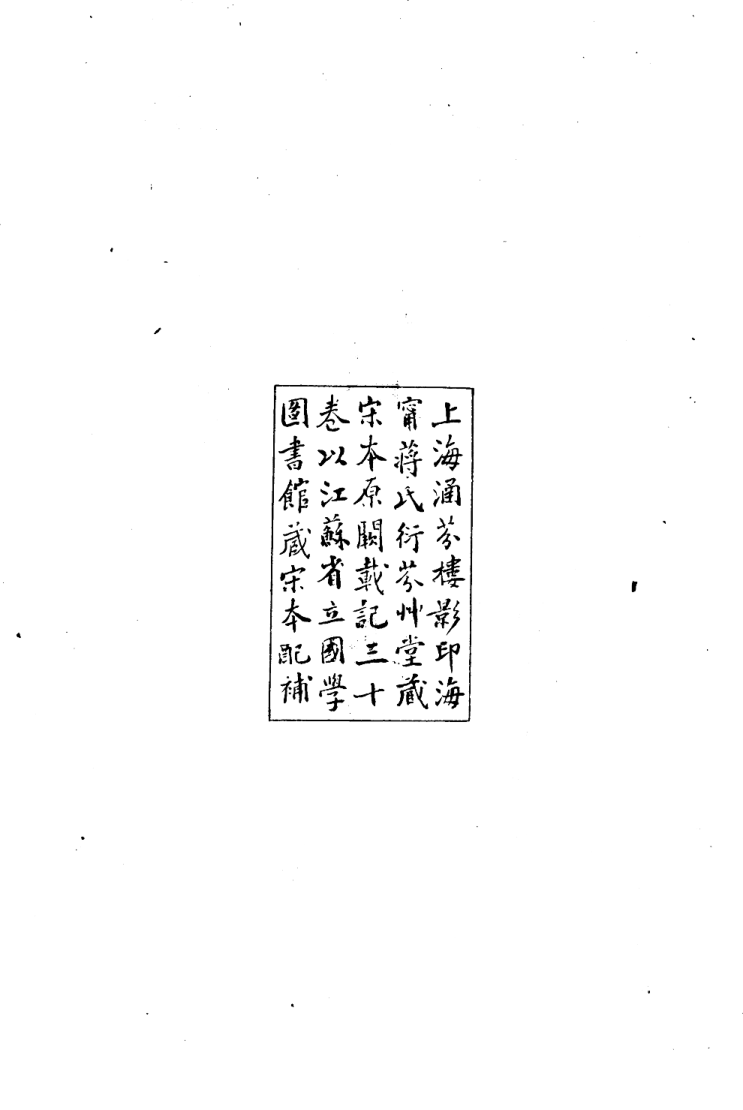 上海涵芬樓影印海
甯蔣氏衍芬艸堂藏
宋本原闕載記三十
卷以江蘇省立國學
圖書館藏宋本配補